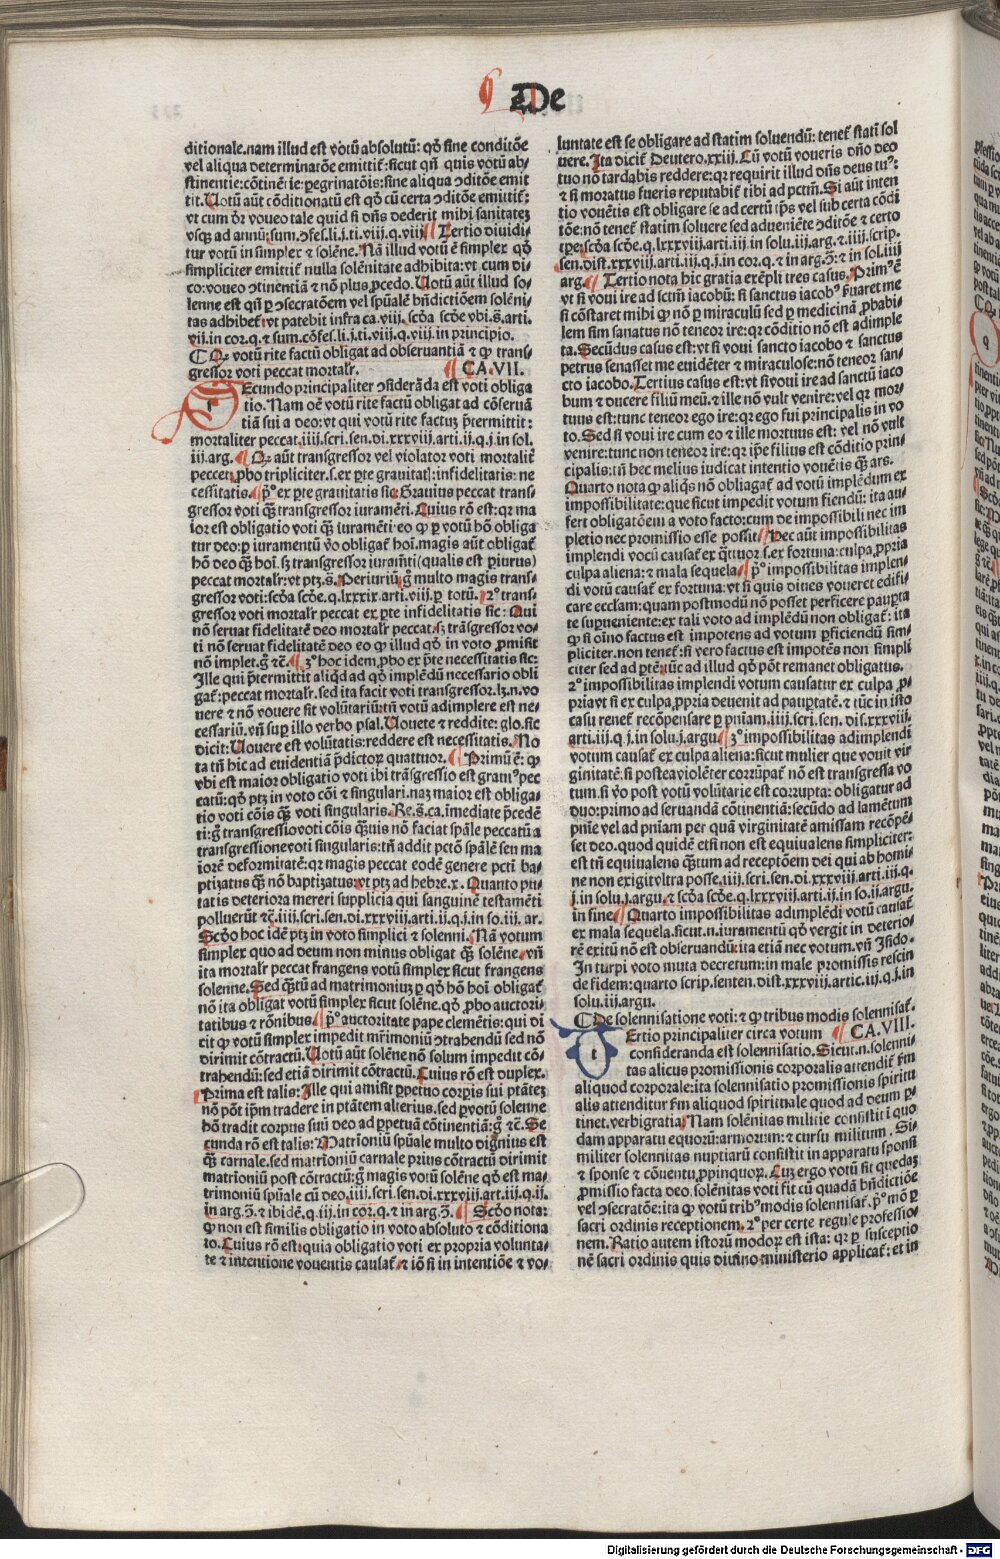 De
ditionale.nam illud est votū absolutū: qd̄ sine conditōe
vel aliqua determinatōe emittit̄: sicut qn̄ quis votū ab⸗
stinentie: cōtinētie: pegrinatōis: sine aliqua ↄditōe emit
tit. Uotū aūt cōditionatū est qd̄ cū certa ↄditōe emittit̄:
vt cum dr̄ voueo tale quid si dn̄s dederit mihi sanitatez
vsqꝫ ad annū: sum.ↄfes.li.j.ti.viij.q.viij. Tertio diuidi⸗
tur votū in simplex ⁊ solēne. Nā illud votū ē simplex qd̄
simpliciter emittit̄ nulla solēnitate adhibita: vt cum di⸗
co: voueo ↄtinentiā ⁊ nō plus ꝓcedo. Uotū aūt illud so⸗
lenne est qn̄ ꝑ ↄsecratōem vel spūalē bn̄dictiōem solēni⸗
tas adhibet̄: vt patebit infra ca.viij. scd̄a scd̄e vbi.s̄.arti.
vij.in cor.q. ⁊ sum.cōfes.li.j.ti.viij.q.viij.in principio.
Qꝙ votū rite factū obligat ad obseruantiā ⁊ ꝙ trans⸗
gressor voti peccat mortalr̄. CA.VII.
Ecundo principaliter ↄsiderāda est voti obliga
tio. Nam oē votū rite factū obligat ad cōseruā
tiā sui a deo: vt qui votū rite factuꝫ p̄termittit:
mortaliter peccat.iiij.scri.sen.di.xxxviij.arti.ij.q.j.in sol.
iij.arg. Qꝙ aūt transgressor vel violator voti mortalit̄
peccet: ꝓbo tripliciter.s.ex ꝑte grauitat̄: infidelitatis: ne
cessitatis. pº ex ꝑte grauitatis sic: Grauius peccat trans⸗
gressor voti qꝫ transgressor iuramēti. Cuius rō est: qꝛ ma
ior est obligatio voti qꝫ iuramēti: eo ꝙ ꝑ votū hō obliga
tur deo: ꝑ iuramentū v̄o obligat̄ hoī. magis aūt obligat̄
hō deo qꝫ hoī. sꝫ transgressor iuram̄ti (qualis est ꝑiurus)
peccat mortalr̄: vt ptꝫ.s̄. Periuriū: g̊ multo magis trans⸗
gressor voti: scd̄a scd̄e.q.lxxxix.arti.viij.ꝑ totū. 2º trans⸗
gressor voti mortalr̄ peccat ex ꝑte infidelitatis sic: Qui
nō seruat fidelitatē deo peccat mortalr̄. sꝫ trāsgressor vo⸗
ti nō seruat fidelitatē deo eo ꝙ illud qd̄ in voto ꝓmisit
nō implet. g̊ ⁊c̄. 3º hoc idem ꝓbo ex ꝑte necessitatis sic:
Ille qui p̄termittit aliqd̄ ad qd̄ implēdū necessario obli
gat̄: peccat mortalr̄. sed ita facit voti transgressor. lꝫ.n.vo
uere ⁊ nō vouere sit volūtariū: tn̄ votū adimplere est ne⸗
cessariū. vn̄ suꝑ illo verbo psal. Uouete ⁊ reddite: glo. sic
dicit: Uouere est volūtatis: reddere est necessitatis. No
ta tn̄ hic ad euidentiā p̄dictoꝝ quattuor. Primū ē: ꝙ
vbi est maior obligatio voti ibi trāsgressio est graui⁹ pec
catū: qd̄ ptꝫ in voto cōi ⁊ singulari. naꝫ maior est obliga⸗
tio voti cōis qꝫ voti singularis. Re.s̄.ca.īmediate p̄cedē
ti: g̊ transgressio voti cōis qꝫuis nō faciat spāle peccatū a
transgressione voti singularis: tn̄ addit pctō spālē seu ma
iorē deformitatē: qꝛ magis peccat eodē genere pcti ba⸗
ptizatus qꝫ nō baptizatus: vt ptꝫ ad hebre.x. Quanto pu
tatis deteriora mereri supplicia qui sanguinē testamēti
polluerūt ⁊c̄.iiij.scri.sen.di.xxxviij.arti.ij.q.j.in so.iij.ar.
Scd̄o hoc idē ptꝫ in voto simplici ⁊ solenni. Nā votum
simplex quo ad deum non minus obligat qꝫ solēne. vn̄
ita mortalr̄ peccat frangens votū simplex sicut frangens
solenne. Sed qꝫtū ad matrimoniuꝫ ꝑ qd̄ hō hoī obligat̄
nō ita obligat votū simplex sicut solēne. qd̄ ꝓbo auctori⸗
tatibus ⁊ rōnibus. pº auctoritate pape clemētis: qui di
cit ꝙ votū simplex impedit mr̄imoniū ↄtrahendū sed nō
dirimit cōtractū. Uotū aūt solēne nō solum impedit cō⸗
trahendū: sed etiā dirimit cōtractū. Cuius rō est duplex.
Prima est talis: Ille qui amisit ꝑpetuo corpꝰ sui ptātez
nō pōt ip̄m tradere in ptātem alterius. sed ꝑ votū solenne
hō tradit corpus suū deo ad ꝑpetuā cōtinentiā: g̊ ⁊c̄. Se
cunda rō est talis: Matrioniū spūale multo dignius est
qꝫ carnale. sed matrioniū carnale prius cōtractū dirimit
matrioniū post cōtractū: g̊ magis votū solēne qd̄ est ma⸗
trimoniū spūale cū deo.iiij.scri.sen.di.xxxviij.art.iij.q.ij.
in arg.3. ⁊ ibidē.q.iij.in cor.q. ⁊ in arg.3. Scd̄o nota:
ꝙ non est similis obligatio in voto absoluto ⁊ cōditiona
to. Cuius rō est: quia obligatio voti ex propria volunta⸗
te ⁊ intentione vouentis causat̄: ⁊ iō si in intentiōe ⁊ vo⸗
luntate est se obligare ad statim soluendū: tenet̄ statī sol
uere. Ita dicit̄ Deutero.xxiij. Cū votū voueris dn̄o deo
tuo nō tardabis reddere: qꝛ requirit illud dn̄s deus tu⁹:
⁊ si moratus fueris reputabit̄ tibi ad pctm̄. Si aūt inten
tio vouētis est obligare se ad certū tp̄s vel sub certa cōdi
tiōe: nō tenet̄ statim soluere sed adueniēte ↄditōe ⁊ certo
tꝑe: scd̄a scd̄e.q.lxxxviij.arti.iij.in solu.iij.arg. ⁊ iiij.scrip.
sen.dist.xxxviij.arti.iij.q.j.in cor.q. ⁊ in arg.3. ⁊ in sol.iiij
arg. Tertio nota hic gratia exēpli tres casus. Prim⁹ ē
vt si voui ire ad sctm̄ iacobū: si sanctus iacob⁹ p̄uaret me
si cōstaret mihi ꝙ nō ꝑ miraculū sed ꝑ medicinā ꝓbabi⸗
lem sim sanatus nō teneor ire: qꝛ cōditio nō est adimple
ta. Secūdus casus est: vt si voui sancto iacobo ⁊ sanctus
petrus senasset me euidēter ⁊ miraculose: nō teneor san⸗
cto iacobo. Tertius casus est: vt si voui ire ad sanctū iaco
bum ⁊ ducere filiū meū. ⁊ ille nō vult venire: vel qꝛ mor⸗
tuus est: tunc teneor ego ire: qꝛ ego fui principalis in vo
to. Sed si voui ire cum eo ⁊ ille mortuus est: vel nō vult
venire: tunc non teneor ire: qꝛ ip̄e filius est cōditio prin⸗
cipalis: tn̄ hec melius iudicat intentio vouētis qꝫ ars.
Quarto nota ꝙ aliqs̄ nō obligat̄ ad votū implēdum ex
impossibilitate: que sicut impedit votum fiendū: ita au⸗
fert obligatōem a voto facto: cum de impossibili nec im
pletio nec promissio esse possit. Hec aūt impossibilitas
implendi votū causat̄ ex q̄ttuor.s.ex fortuna: culpa ꝓpria
culpa aliena: ⁊ mala sequela. pº impossibilitas implen⸗
di votū causat̄ ex fortuna: vt si quis diues voueret edifi⸗
care eccl̄am: quam postmodū nō posset perficere paupta
te supueniente: ex tali voto ad implēdū non obligat̄: ita
ꝙ si oīno factus est impotens ad votum ꝑficiendū sim⸗
pliciter. non tenet̄: si vero factus est impotēs non simpli
citer sed ad ꝑtē: tūc ad illud qd̄ pōt remanet obligatus.
2º impossibilitas implendi votum causatur ex culpa ꝓ⸗
pria: vt si ex culpa ꝓpria deuenit ad paupertatē. ⁊ tūc in isto
casu tenet̄ recōpensare ꝑ pn̄iam.iiij.scri.sen.dis.xxxviij.
arti.iij.q.j.in solu.j.argu. 3º impossibilitas adimplendi
votum causat̄ ex culpa aliena: sicut mulier que vouit vir
ginitatē: si postea violēter corrūpat̄ nō est transgressa vo
tum. si v̄o post votū volūtarie est corrupta: obligatur ad
duo: primo ad seruandā cōtinentiā: secūdo ad lamētum
pn̄ie vel ad pn̄iam per quā virginitatē amissam recōpē⸗
set deo. quod quidē etsi non est equiualens simpliciter:
est tn̄ equiualens qꝫtum ad receptōem dei qui ab homi⸗
ne non exigit vltra posse.iiij.scri.sen.di.xxxviij.arti.iij.q.
j.in solu.j.argu. ⁊ scd̄a scd̄e.q.lxxxviij.arti.ij.in so.ij.argu.
in fine. Quarto impossibilitas adimplēdi votū causat̄
ex mala sequela. sicut.n.iuramentū qd̄ vergit in deterio⸗
rē exitū nō est obseruandū: ita etiā nec votum. vn̄ Isido.
In turpi voto muta decretum: in male promissis rescin
de fidem: quarto scrip.senten.dist.xxxviij.artic.iij.q.j.in
solu.iij.argu.
De solennisatione voti: ⁊ ꝙ tribus modis solennisat̄.
Ertio principaliter circa votum CA.VIII.
consideranda est solennisatio. Sicut.n.solenni⸗
tas alicus promissionis corporalis attendit̄ ẜm
aliquod corporale: ita solennisatio promissionis spiritu
alis attenditur ẜm aliquod spirituale quod ad deum ꝑ⸗
tinet. verbi gratia: Nam solēnitas militie consistit ī quo
dam apparatu equorū: armorum: ⁊ cursu militum. Si⸗
militer solennitas nuptiarū consistit in apparatu sponsi
⁊ sponse ⁊ cōuentu ꝓpinquoꝝ. Cuꝫ ergo votū sit quedaꝫ
ꝓmissio facta deo. solēnitas voti fit cū quadā bn̄dictiōe
vel ↄsecratōe: ita ꝙ votū trib⁹ modis solennisat̄. pº mō ꝑ
sacri ordinis receptionem. 2º per certe regule professio⸗
nem. Ratio autem istorū modoꝝ est ista: qꝛ ꝑ susceptio
nē sacri ordinis quis diuino ministerio applicat̄: et in
Digitalisierung gefördert durch die Deutsche Forschungsgemeinschaft - DFG